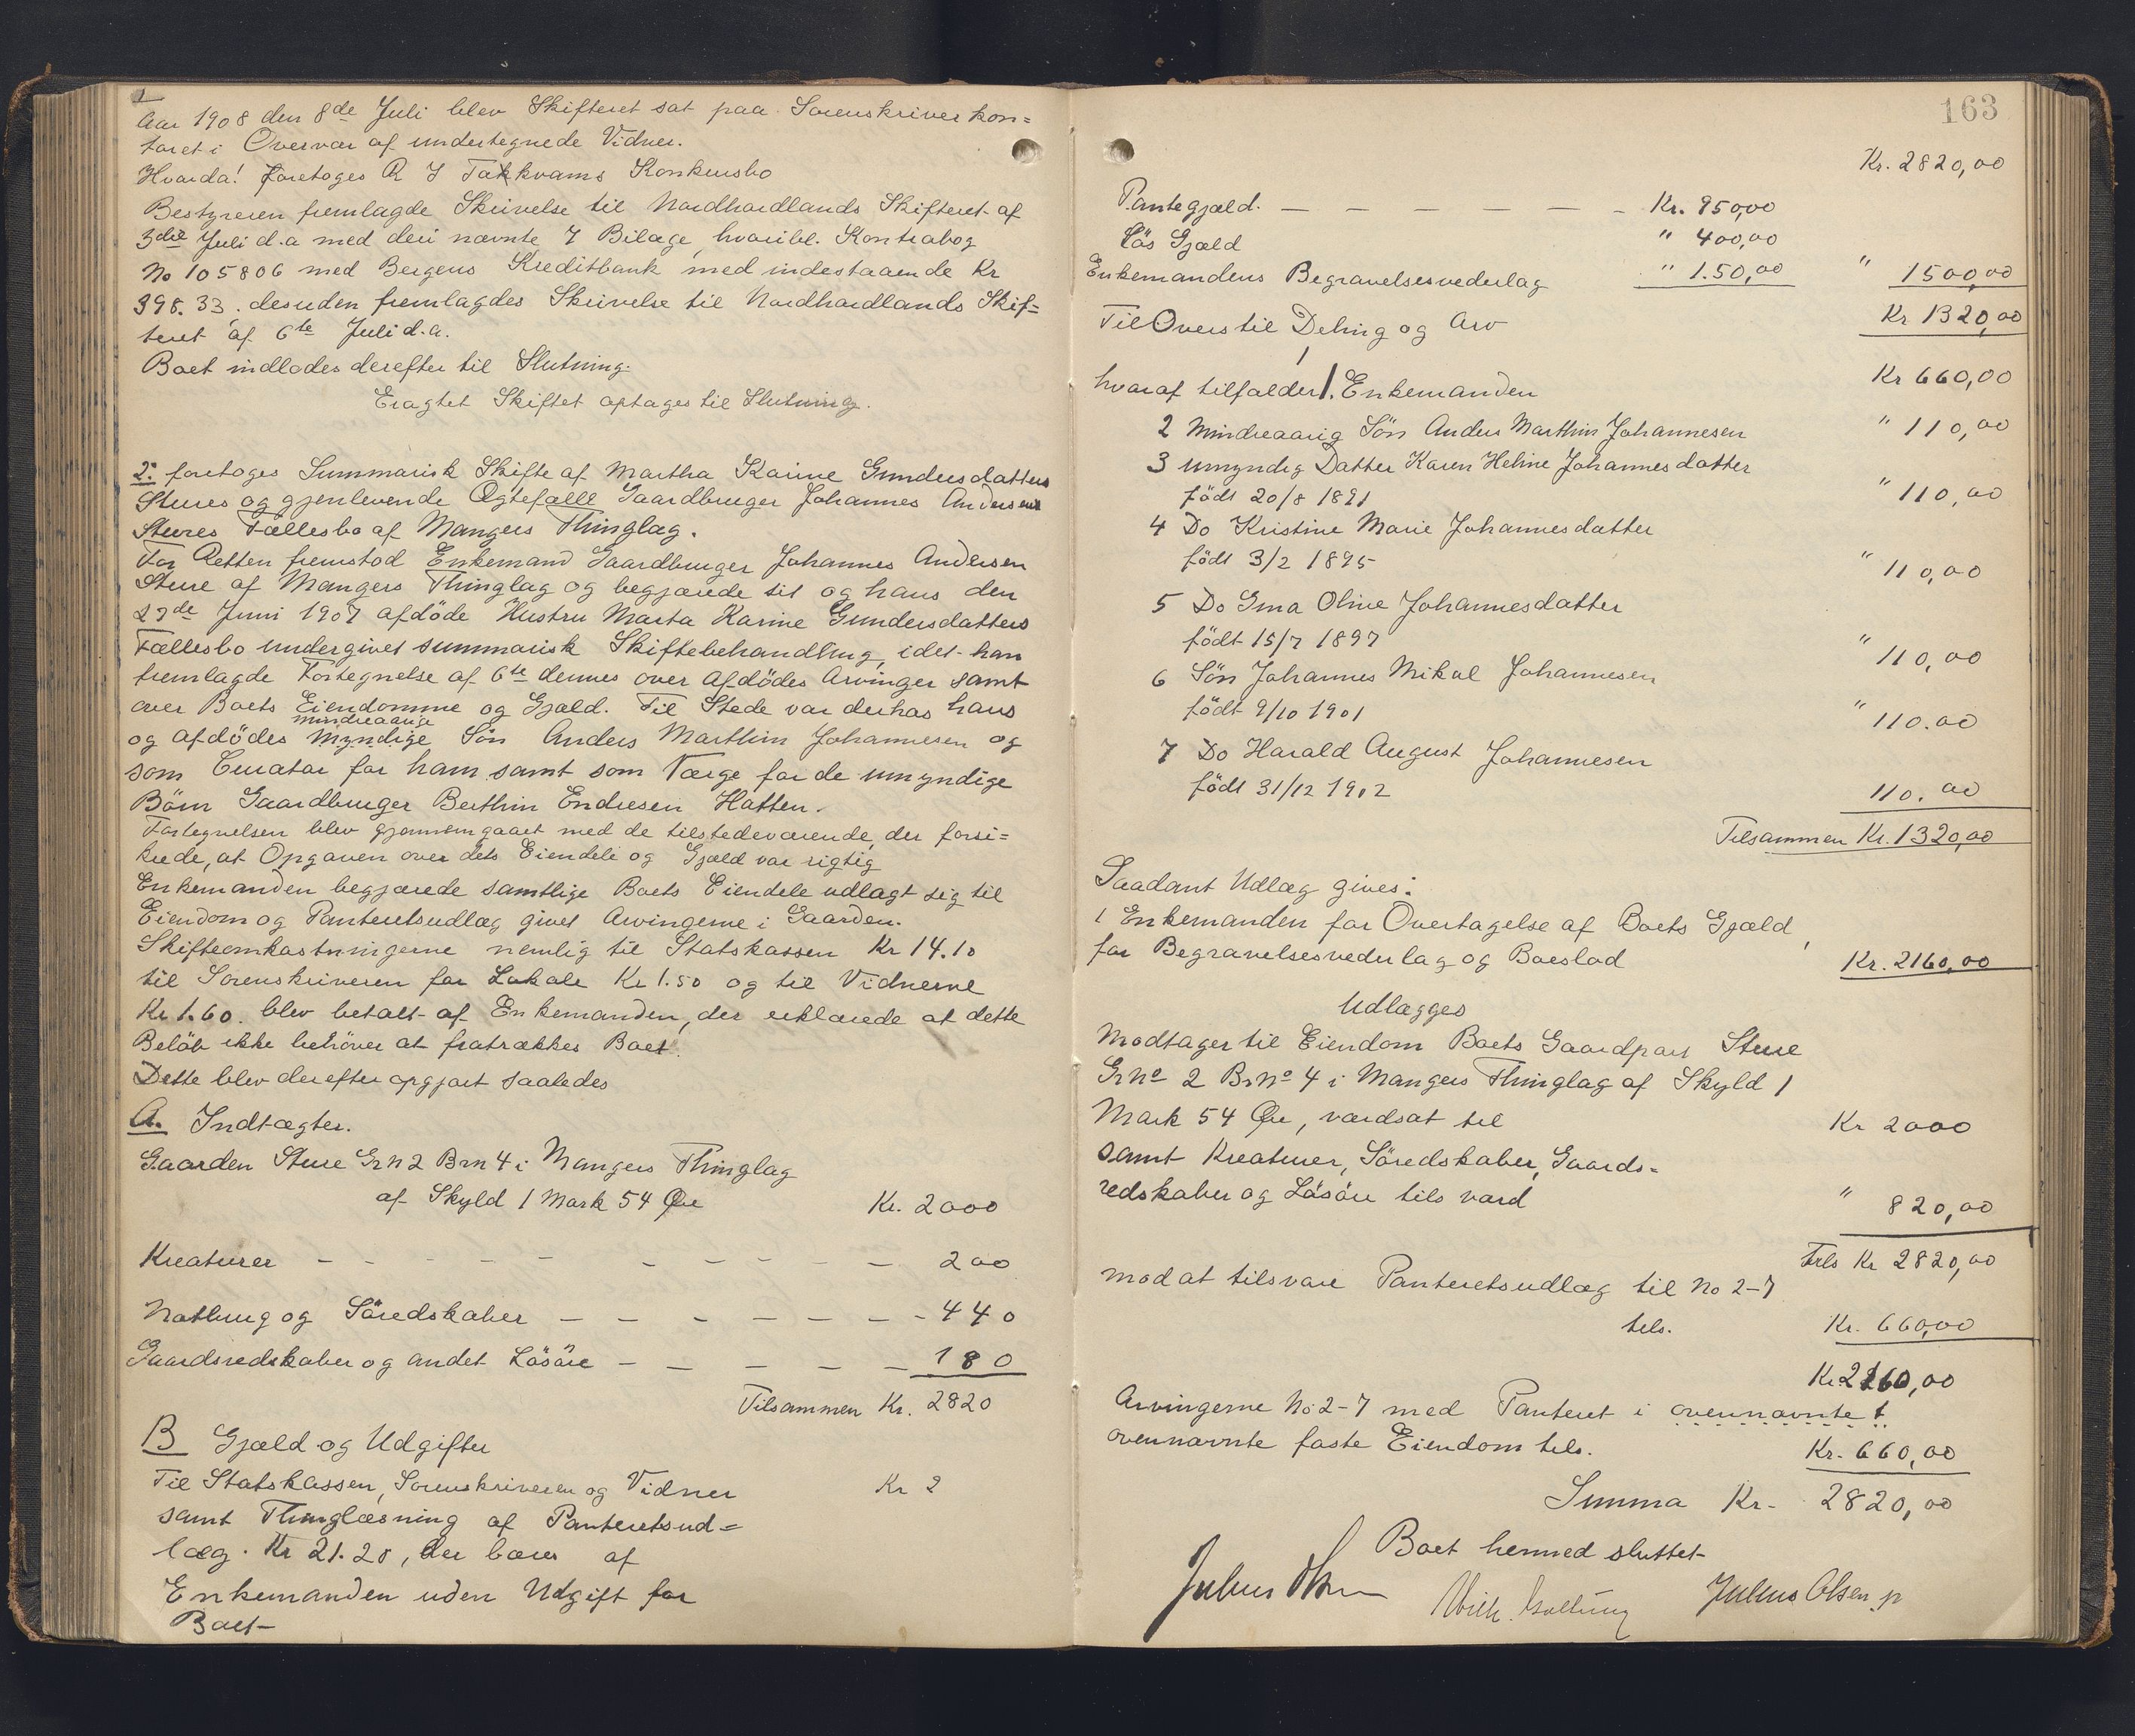 1
Aar 1908 den 8de Juli blev Skifteret sat paa Sorenskriverkon=
toret i Overvær af undertegnede Vidner.
Hvorda! Foretoges R I Takkvams Konkursbo
Bestyreren fremlagde Skrivelse til Nordhordlands Skifteret af
3die Juli d.a med deri nævnte 7 Bilage, hvoribl. Kontrabog
No 105806 med Bergens Kreditbank med indestaaende Kr
398.33. desuden fremlagdes Skrivelse til Nordhordlands Skif=
teret af 6te Juli d.a.
Boet indlodes derefter til Slutning.
Eragtet Skiftet optages til Slutning.
2. foretoges Summarisk Skifte af Martha Karine Gundersdatters
Stures og gjenlevende Ægtefælle Gaardbruger Johannes Andersens
Stures Fællesbo af Mangers Thinglag.
For Retten fremstod Enkemand Gaardbruger Johannes Andersen
Sture af Mangers Thinglag og begjærede sit og hans den
27de Juni 1907 afdöde Hustru Marta Karine Gundersdatters
Fællesbo undergivet summarisk Skiftebehandling, idet han
fremlagde Fortegnelse af 6te dennes over Afdödes Arvinger samt
over Boets Eiendomme og Gjæld. Til Stede var derhos hans
mindreaarige
og afdödes Myndige Sön Anders Marthin Johannesen og
som Curator for ham samt som Værge for de umyndige
Börn Gaardbruger Berthin Endresen Hatten.
Fortegnelsen blev gjennemgaaet med de tilstedeværende, der forsi=
krede, at Opgaven over dets Eiendele og Gjæld var rigtig
Enkemanden begjærede samtlige Boets Eiendele udlagt sig til
Eiendom og Panteretsudlæg givet Arvingerne i Gaarden.
Skifteomkastningerne nemlig til Statskassen Kr 14.10
til Sorenskriveren for Lokale Kr 1.50 og til Vidnerne
Kr 1.60. blev betalt af Enkemanden, der erklærede at dette
Belöb ikke behöver at fratrækkes Boet.
Dette blev derefter opgjort saaledes
A. Indtægter.
Gaarden Sture Gr n 2 Br n 4 i Mangers Thinglag
af Skyld 1 Mark 54 Öre Kr. 2000
Kreaturer – – – – – – – – – 200
Notbrug og Söredskaber – – – – – – – 440
Gaardsredskaber og andet Lösöre – – – – – 180
Tilsammen Kr. 2820
B Gjæld og Udgifter
Til Statskassen, Sorenskriveren og Vidner Kr 2
samt Thinglæsning af Panteretsud=
læg. Kr 21.20, der bæres af
Enkemanden uden Udgift for
Boet
163
Kr. 2820,00
Pantegjæld. – – – – – – Kr. 950,00
Lös Gjæld " 400,00
Enkemandens Begravelsesvederlag " 1.50,00 " 1500,00
Til Overs til Deling og Arv Kr 1320,00
hvoraf tilfalder 1. Enkemanden Kr 660,00
2 Mindreaarig Sön Anders Marthin Johannesen " 110,00
3 Umyndig Datter Karen Heline Johannesdatter
födt 20/8 1891 " 110,00
4 Do Kristine Marie Johannesdatter
födt 3/2 1895 " 110,00
5 Do Gma Oline Johannesdatter
födt 15/7 1897 " 110,00
6 Sön Johannes Mikal Johannesen
födt 9/10 1901 " 110.00
7 Do Harald August Johannesen
födt 31/12 1902 110.00
Tilsammen Kr. 1320,00
Saadant Udlæg gives:
1 Enkemanden for Overtagelse af Boets Gjæld,
for Begravelsesvederlag og Boeslod Kr. 2160,00
Udlægges
Modtager til Eiendom Boets Gaardpart Sture
Gr No 2 Br No 4 i Mangers Thinglag af Skyld 1
Mark 54 Öre, værdsat til Kr 2000
samt Kreaturer, Söredskaber, Gaards=
redskaber og Lösöre tils værd " 820,00
Tils Kr 2820,00
mod at tilsvare Panteretsudlæg til No 2-7
tils. Kr. 660,00
Kr 2160,00
Arvingerne No 2-7 med Panteret i ovennævnte
ovennævnte faste Eiendom tils. Kr. 660,00
Summa Kr. 2820,00
Boet hermed sluttet
Julius Olsen Wilh. Julius Olsen jr